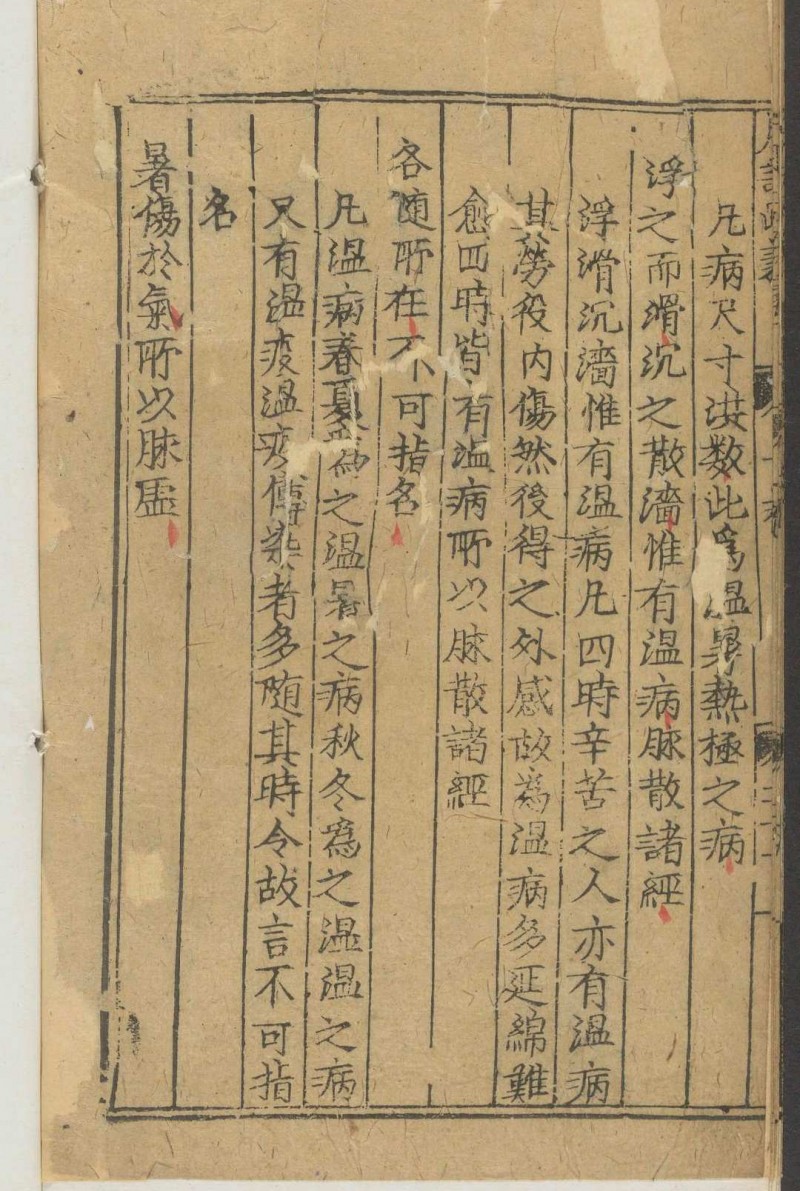 凡病尺寸洪数此爲温暑熱極之病
浮之而滑沉之散濇惟有温病脉散諸經
浮滑沉濇惟有温病凡四時辛苦之人亦有温病
其勞役内傷然後得之外感故爲温病多延綿難
愈四時皆有温病所以脉散諸經
各随所在不可指名
凡温病春夏爲之温暑之病秋冬爲之温温之病
又有温疫温疹傳染者多随其時令故言不可指
名
暑傷於氣所以脉虚